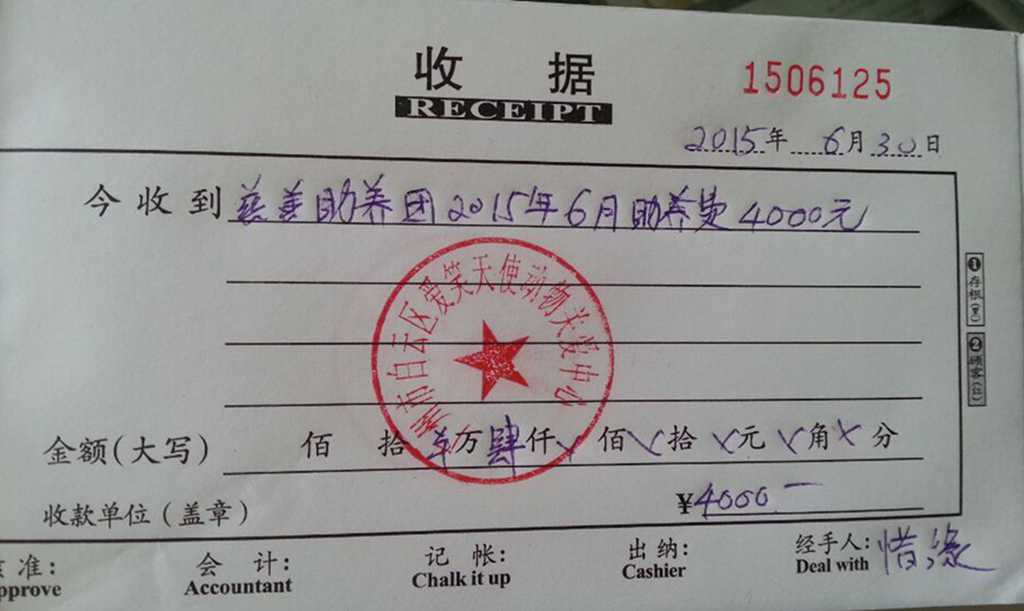 收据
1506125
RECEIPT
2015年 6月 30日
今收到 慈善助养团2015年6月助养费4000元
州市白云区爱笑天使动物关爱中心
❶存根(黑)
❷顾客(红)
金额(大写) 佰 拾 万 肆仟 佰 拾 元 角 分
收款单位(盖章) ¥4000.一
准: 会计: 记帐: 出纳: 经手人: 惜缘
pprove Accountant Chalk it up Cashier Deal with